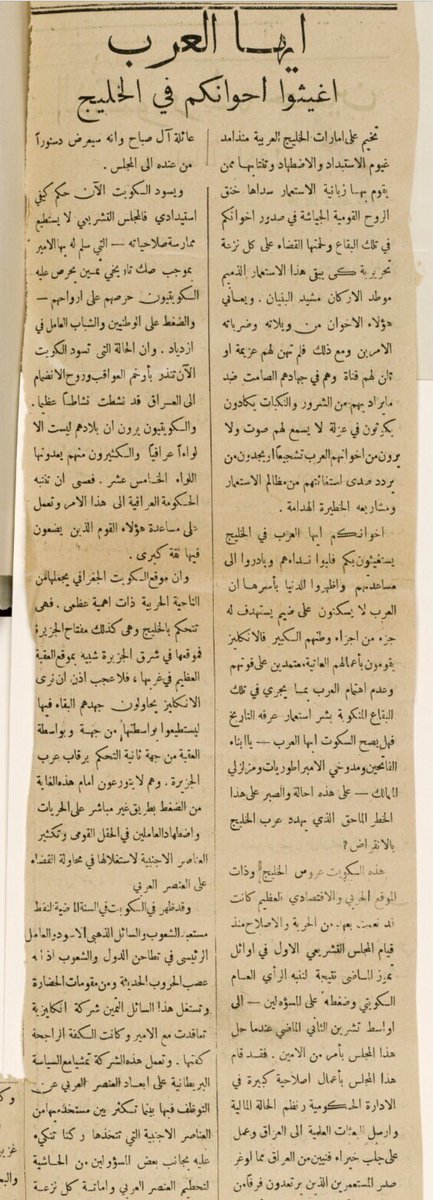 ايها العرب
اغيثوا اخوانكم في الخليج
تخيم على امارات الخليج العربية منذ امد
غيوم الاستبداد والاضطهاد وتنتابها محن
يقوم بها زبانية الاستعمار سداها خنق
الروح القومية الجياشة في صدور اخوانكم
في تلك البقاع ولحمتها القضاء على كل نزعة
تحريرية كي يبقى هذا الاستعمار الذميم
موطد الاركان مشيد البنيان . ويعاني
هؤلاء الاخوان من ويلاته وضرباته
الامرين ومع ذلك فلم تهن لهم عزيمة او
تلن لهم قناة وهم في جهادهم الصامت ضد
مايراد بهم من الشرور والنكبات يكادون
يكونون في عزلة لا يسمع لهم صوت ولا
يرون من اخوانهم العرب تشجيعاً او يجدون من
يردد صدى استغاثتهم من مظالم الاستعمار
ومشاريعه الخطيرة الهدامة .
اخوانكم ايها العرب في الخليج
يستغيثون بكم فلبوا نداءهم وبادروا الى
مساعدتهم واظهروا للدنيا بأسرها ان
العرب لا يسكتون على ضيم يستهدف له
جزء من اجزاء وطنهم الكبير فالانكليز
يقومون بأعمالهم العاتية معتمدين على قوتهم
وعدم اهتمام العرب بما يجري في تلك
البقاع المنكوبة بشر استعمار عرفه التاريخ
فهل يصح السكوت ايها العرب — يا ابناء
الفاتحين ومدوخي الامبراطوريات ومزلزلي
الممالك — على هذه الحالة والصبر على هذا
الخطر الماحق الذي يهدد عرب الخليج
بالانقراض ؟
هذه الكويت عروس الخليج وذات
الموقع الحربي والاقتصادي العظيم كانت
قد نعمت بعهد من الحرية والاصلاح منذ
قيام المجلس التشريعي الاول في اوائل
تموز الماضي نتيجة لتنبه الرأي العام
الكويتي وضغطه على المسؤولين — الى
اواسط تشرين الثاني الماضي عندما حل
هذا المجلس بأمر من الامير . فقد قام
هذا المجلس بأعمال اصلاحية كبيرة في
الادارة الحكومية ونظم الحالة المالية
وارسل البعثات العلمية الى العراق وعمل
على جلب خبراء فنيين من العراق مما اوغر
صدر المستعمرين الذين يرتعدون فرقا من
عائلة آل صباح وانه سيعرض دستوراً
من عنده الى المجلس .
ويسود الكويت الآن حكم كيفي
استبدادي فالمجلس التشريعي لا يستطيع
ممارسة صلاحياته — التي سلم له بها الامير
بموجب صك تاريخي ثمين يحرص عليه
الكويتيون حرصهم على ارواحهم —
والضغط على الوطنيين والشباب العامل في
ازدياد . وان الحالة التي تسود الكويت
الآن تنذر بأوخم العواقب وروح الانضمام
الى العراق قد نشطت نشاطاً عظيما .
والكويتيون يرون ان بلادهم ليست الا
لواءاً عراقياً والكثيرون منهم يعدونها
اللواء الخامس عشر . فعسى ان تنتبه
الحكومة العراقية الى هذا الامر وتعمل
على مساعدة هؤلاء القوم الذين يضعون
فيها ثقة كبرى .
وان موقع الكويت الجغرافي يجعلها من
الناحية الحربية ذات اهمية عظمى . فهي
تتحكم بالخليج وهي كذلك مفتاح الجزيرة
فموقعها في شرق الجزيرة شبيه بموقع العقبة
العظيم في غربها ، فلا عجب اذن ان نرى
الانكليز يحاولون جهدهم البقاء فيها
ليستطيعوا بواسطتها من جهة وبواسطة
العقبة من جهة ثانية التحكم برقاب عرب
الجزيرة . وهم لا يتورعون امام هذه الغاية
من الضغط بطريق غير مباشر على الحريات
واضطهاد العاملين في الحقل القومي وتكثير
العناصر الاجنبية لاستغلالها في محاولة القضاء
على العنصر العربي
وقد ظهر في الكويت في السنة الماضية النفط
مستعبد الشعوب والسائل الذهبي الاسود والعامل
الرئيسي في تطاحن الدول والشعوب اذ انه
عصب الحروب الحديثة ومن مقومات الحضارة
وتستغل هذا السائل الثمين شركة انكليزية
تعاقدت مع الامير وكانت الكفة الراجحة
كفتها . وتعمل هذه الشركة تمشيا مع السياسة
البريطانية على ابعاد العنصر العربي عن
التوظف فيها بينما تكثر بين مستخدميها من
العناصر الاجنبية التي تتخذها ركنا تتكيء
عليه بجانب بعض المسؤولين من الحاشية
لتحطيم العنصر العربي واماتة كل نزعة